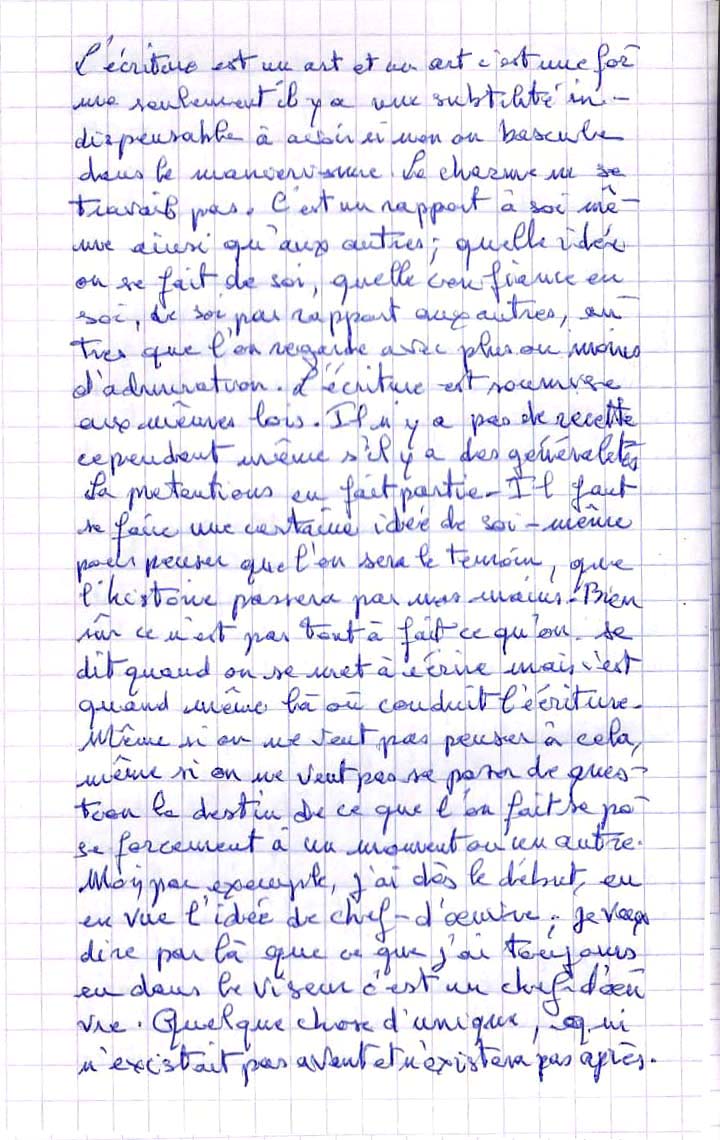 L'écriture est un art et un art c'est une for-
me seulement il y a une subtilité in-
dispensable à avoir si non on bascule
dans le maniérisme. Le charme ne se
travail pas. C'est un rapport à soi mê-
me ainsi qu'aux autres ; quelle idée
on se fait de soi, quelle confiance en
soi, de soi par rapport aux autres, au-
tres que l'on regarde avec plus ou moins
d'admiration. L'écriture est soumise
aux mêmes lois. Il n'y a pas de recette
cependant même s'il y a des généralités
La prétentions en fait partie - Il faut
se faire une certaine idée de soi-même
pour penser que l'on sera le témoin, que
l'histoire passera par nos mains. Bien
sûr ce n'est pas tout à fait ce qu'on se
dit quand on se met à écrire mais c'est
quand même là où conduit l'écriture.
Même si on ne veut pas penser à cela,
même si on ne veut pas se poser de ques-
tion le destin de ce que l'on fait se po-
se forcement à un moment ou un autre.
Moi, par exemple, j'ai dès le début, eu
en vue l'idée de chef-d'œuvre ; je veux
dire par là que ce que j'ai toujours
eu dans le viseur c'est un chef-d'œu
vre. Quelque chose d'unique, qui
n'existait pas avant et n'existera pas après.